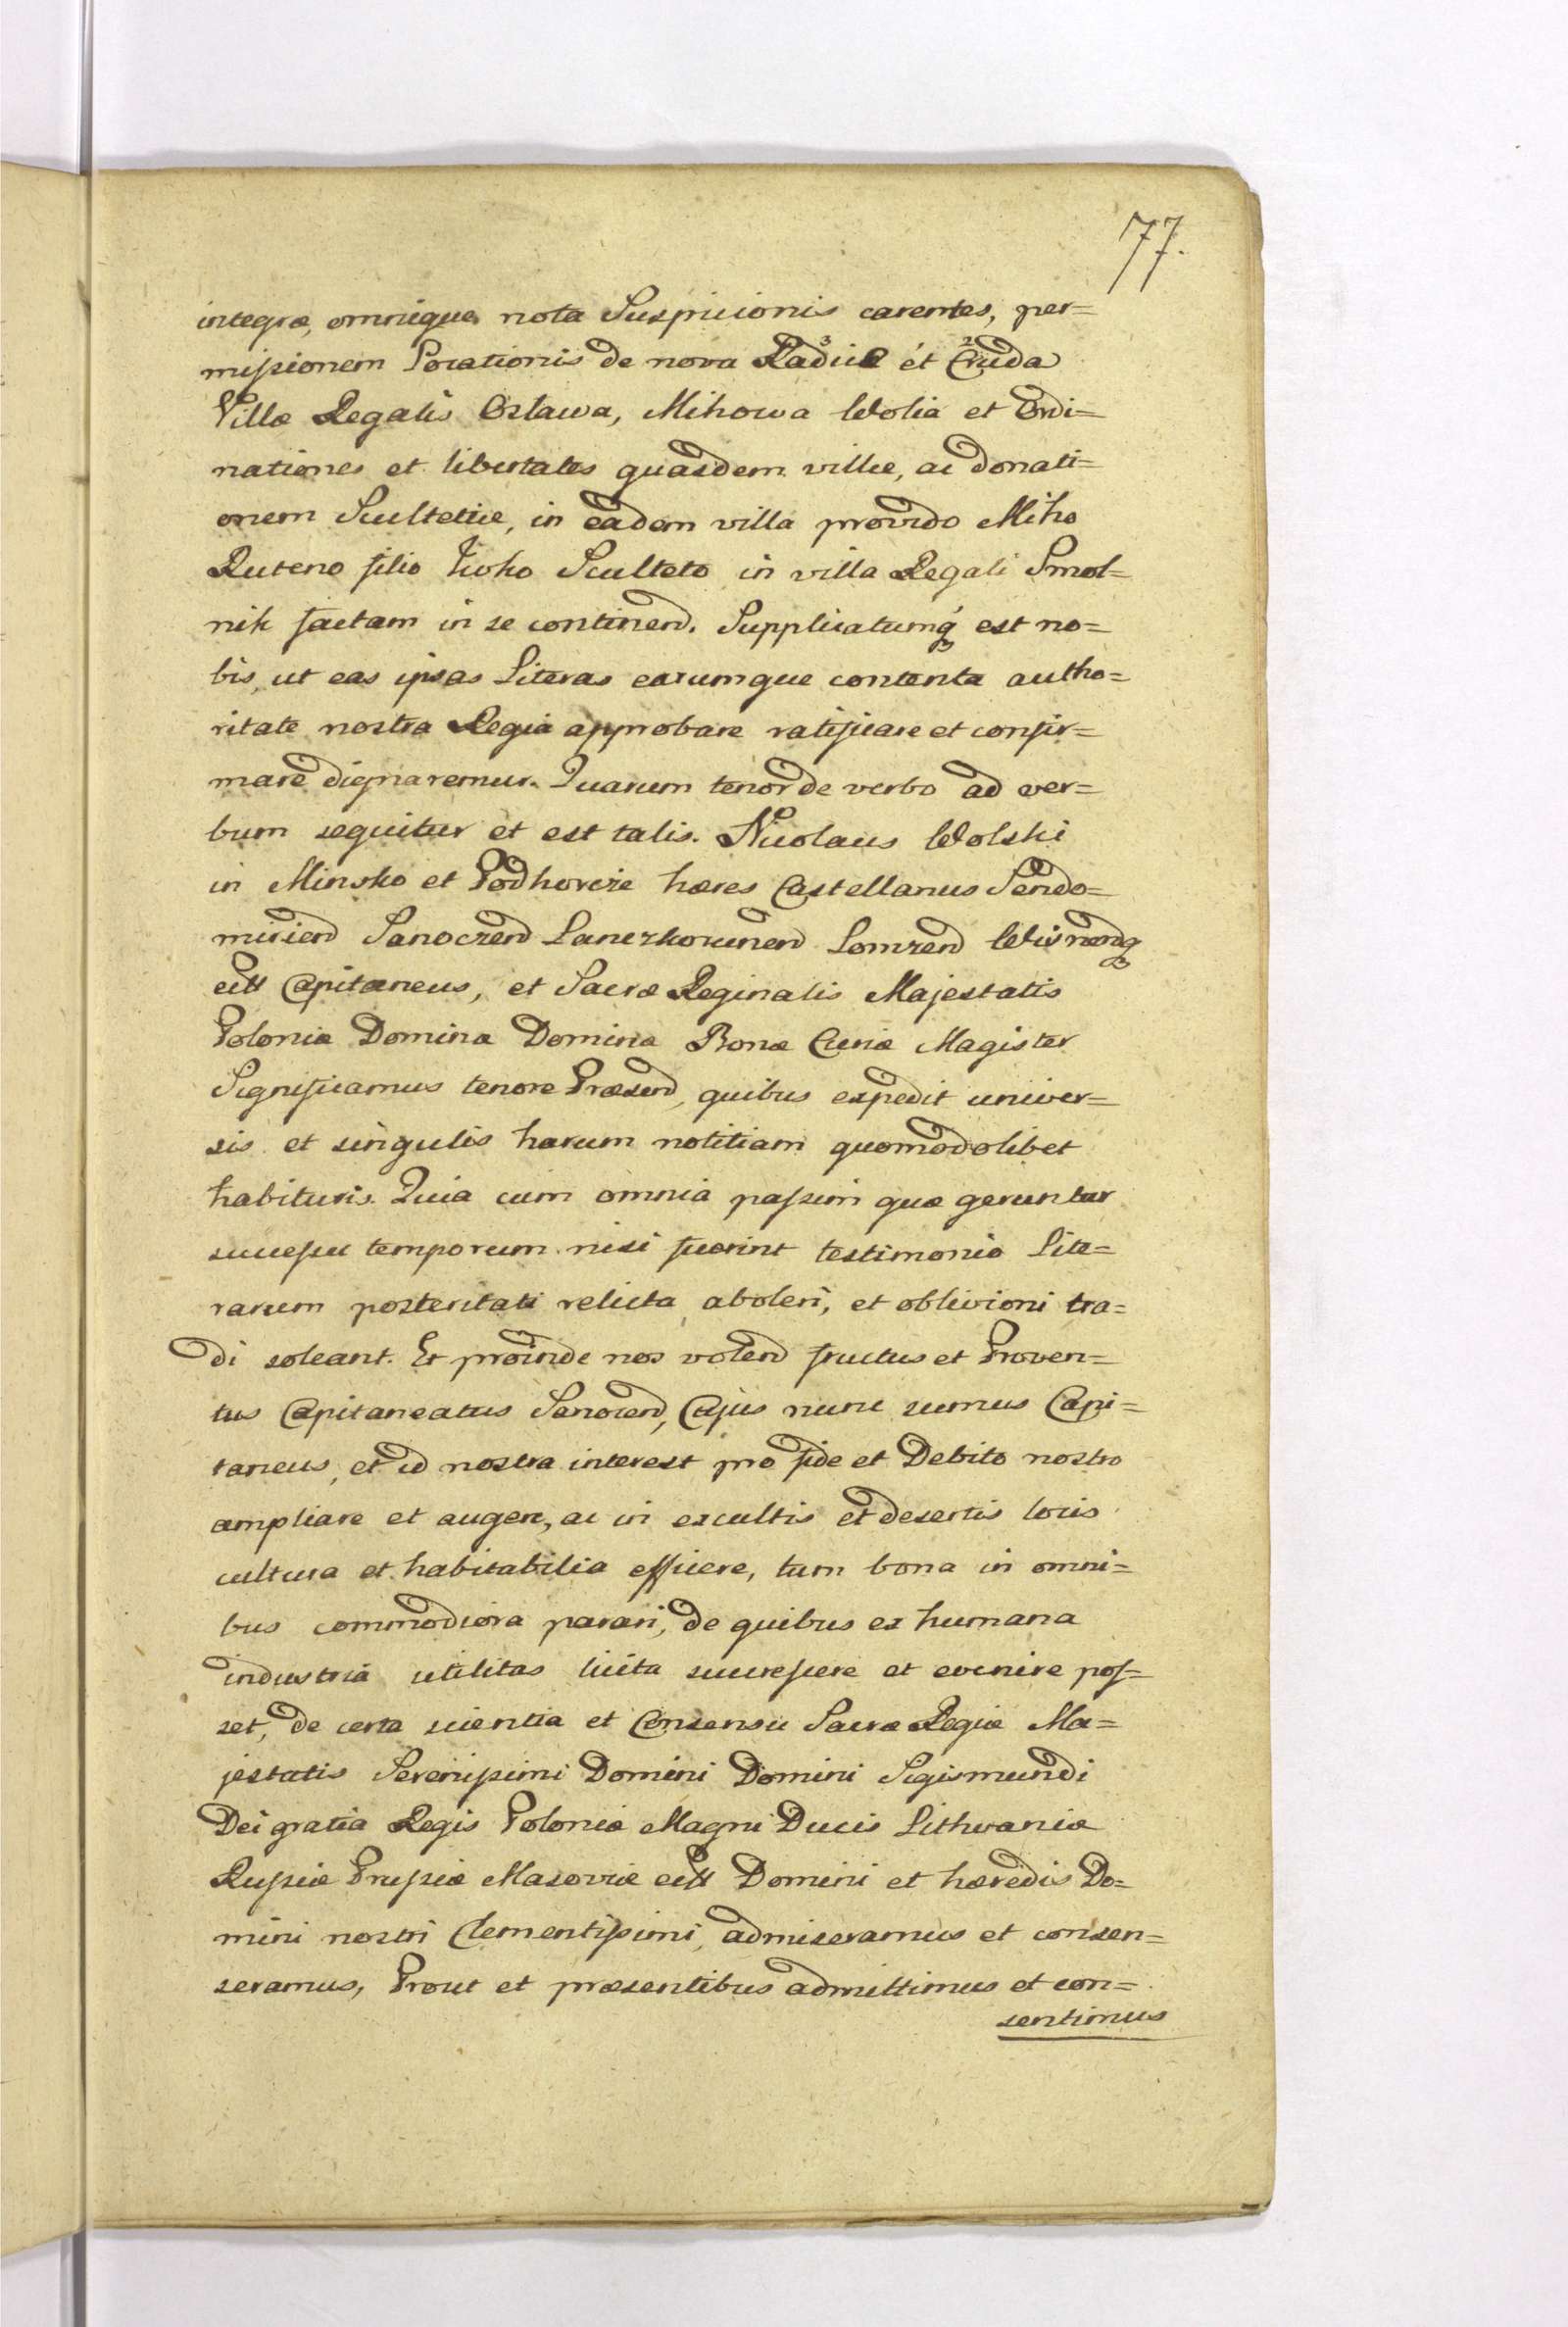 77.
integræ, omnique nota Suspicionis carentes, per=
missionem Locationis de nova Radice et Cruda
Villæ Regalis Oslawa, Mihowa Wolia et Ordi=
nationes et libertates quasdem villæ, ac donati=
onem Scultetiæ, in eadem villa provido Miho
Ruteno filio Sculteto in villa Regali Smol=
nik factam in se continend. Supplicatumq est no=
bis, ut eas ipsas Literas earumque contenta autho=
ritate nostra Regia approbare ratificare et confir=
mare dignaremur. Quarum tenor de verbo ad ver=
bum sequitur et est talis. Nicolaus Wolski
in Minsko et Podhorcze hæres Castellanus Sendo=
miriend Sanoczend Lanczkorunend Lomzend Wisnendq
ett Capitaneus, et Sacræ Reginalis Majestatis
Poloniæ Dominæ Dominæ Bonæ Curiæ Magister
Significamus tenore Præsend, quibus expedit univer=
sis et singulis harum notitiam quomodolibet
habituris. Quia cum omnia passim quæ geruntur
successu temporum nisi fuerint testimonio Lite=
rarum posteritati relicta, aboleri, et oblivioni tra=
di soleant. Et proinde nos volend fructus et Proven=
tus Capitaneatus Sanocend, Cujus nunc sumus Capi=
taneus, et id nostra interest pro fide et Debito nostro
ampliare et augere, ac in excultis et desertis locis
cultura et habitabilia efficere, tum bona in omni=
bus commodiora parari, de quibus ex humana
industria utilitas licita succrescere et evenire pos=
set, de certa scientia et Consensu Sacræ Regiæ Ma=
jestatis Serenissimi Domini Domini Sigismundi
Dei gratia Regis Poloniæ Magni Ducis Lithvaniæ
Russiæ Prussiæ Masoviæ ett Domini et hæredis Do=
mini nostri Clementissimi, admiseramus et consen=
seramus, Prout et præsentibus admittimus et con=
sentimus